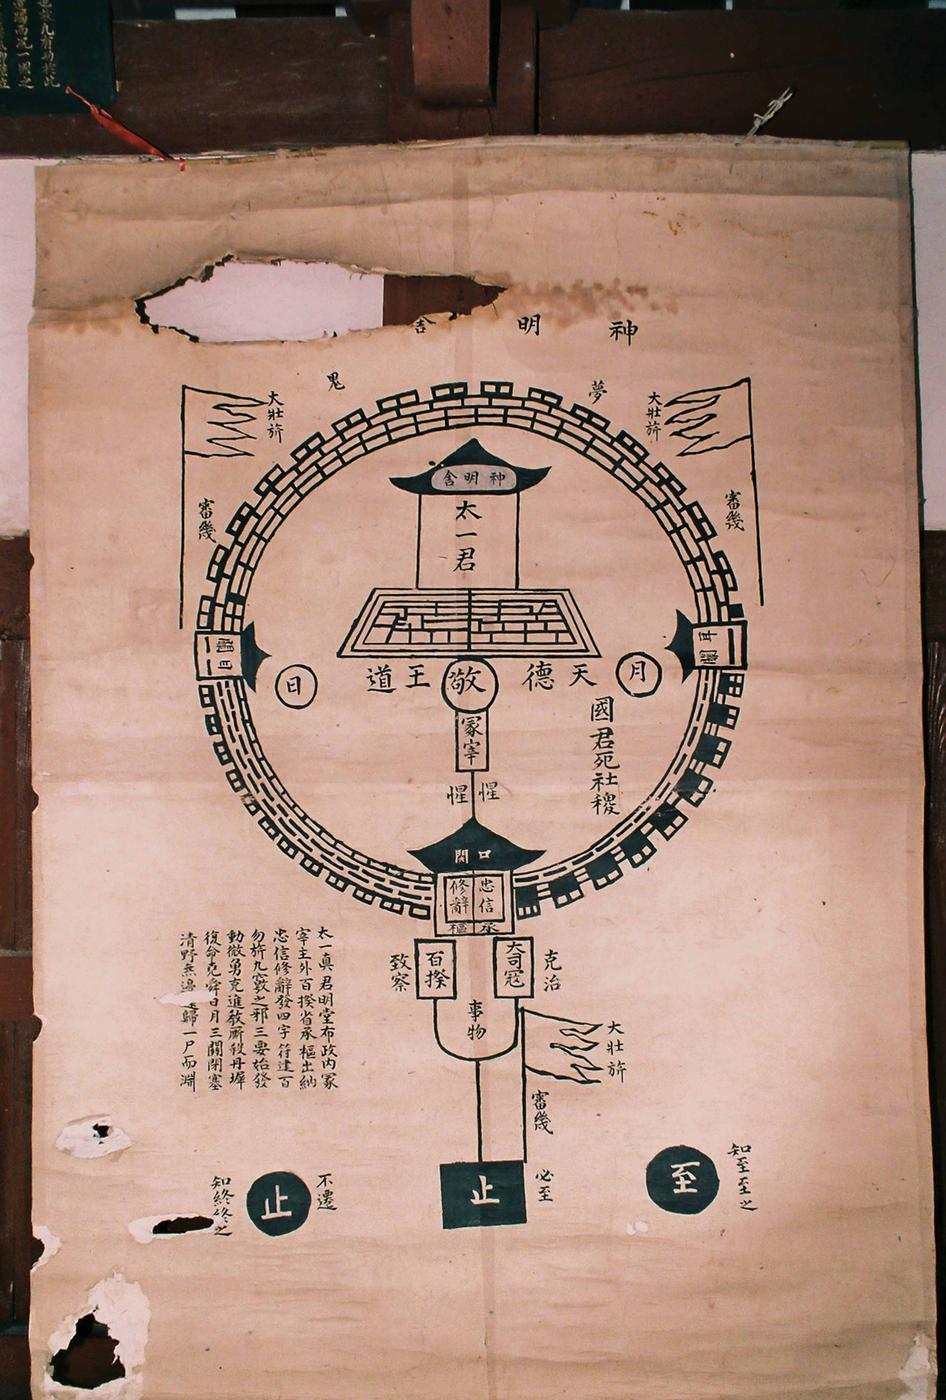 神明舍
夢
鬼
大壯旂
審幾
大壯旂
審幾
神明舍
太一君
耳關
目關
月
天德
敬
王道
日
國君死社稷
冢宰
惺
惺
口關
忠信
修辭
承
樞
大司寇
百揆
克治
致察
事物
大壯旂
審幾
太一真君明堂布政内冢
宰主外百揆省承樞出納
忠信修辭發四字符建百
勿旂九竅之邪三要始發
動微勇克進教厮殺丹墀
復命堯舜日月三關閉塞
清野無邊還歸一尸而淵
必至
止
至
知至至之
不遷
止
知終終之